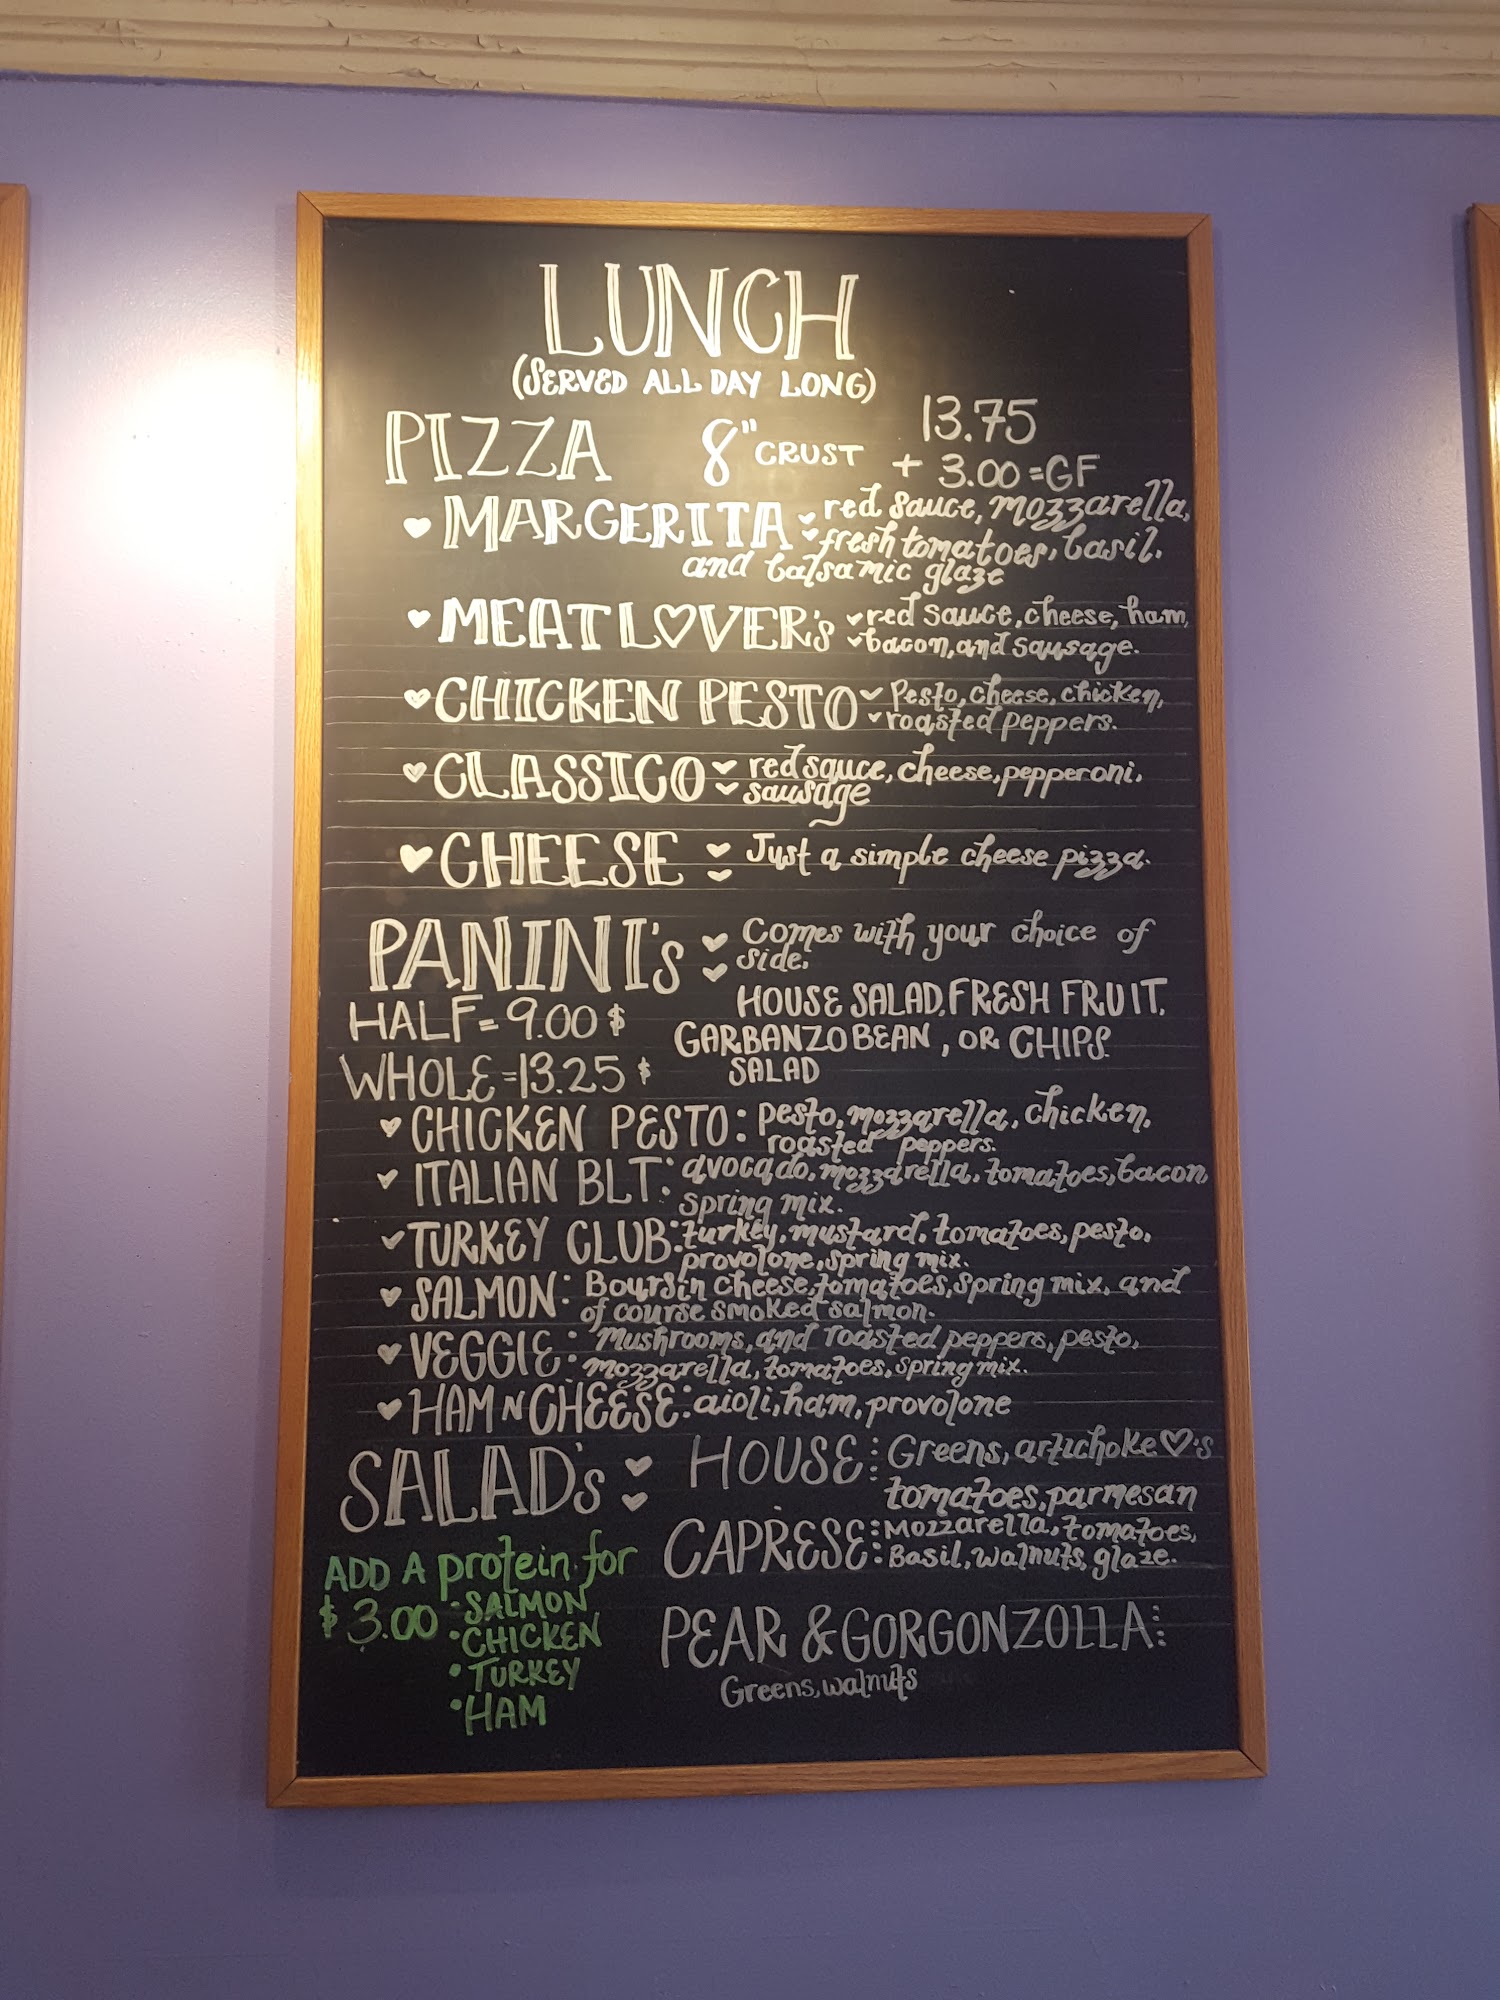 LUNCH
(SERVED ALL DAY LONG)
PIZZA 8" CRUST 13.75
+ 3.00 = GF
♥ MARGERITA red sauce, mozzarella,
fresh tomatoes, basil,
and balsamic glaze
♥ MEAT L♡VER's red sauce, cheese, ham,
bacon, and sausage.
♥ CHICKEN PESTO Pesto, cheese, chicken,
roasted peppers.
♥ CLASSICO red sauce, cheese, pepperoni,
sausage
♥ CHEESE Just a simple cheese pizza.
PANINI's Comes with your choice of
side.
HALF = 9.00 $ HOUSE SALAD, FRESH FRUIT,
GARBANZO BEAN, OR CHIPS.
WHOLE = 13.25 $ SALAD
♥ CHICKEN PESTO: pesto, mozzarella, chicken,
roasted peppers.
♥ ITALIAN BLT: avocado, mozzarella, tomatoes, bacon,
spring mix.
♥ TURKEY CLUB: turkey, mustard, tomatoes, pesto,
provolone, spring mix.
♥ SALMON: Boursin cheese, tomatoes, spring mix, and
of course smoked salmon.
♥ VEGGIE: Mushrooms, and roasted peppers, pesto,
mozzarella, tomatoes, spring mix.
♥ HAM N CHEESE: aioli, ham, provolone
SALAD's HOUSE: Greens, artichoke ♡'s
tomatoes, parmesan
CAPRESE: Mozzarella, tomatoes,
Basil, walnuts, glaze.
PEAR & GORGONZOLLA:
Greens, walnuts
ADD A protein for
$3.00 • SALMON
• CHICKEN
• TURKEY
• HAM